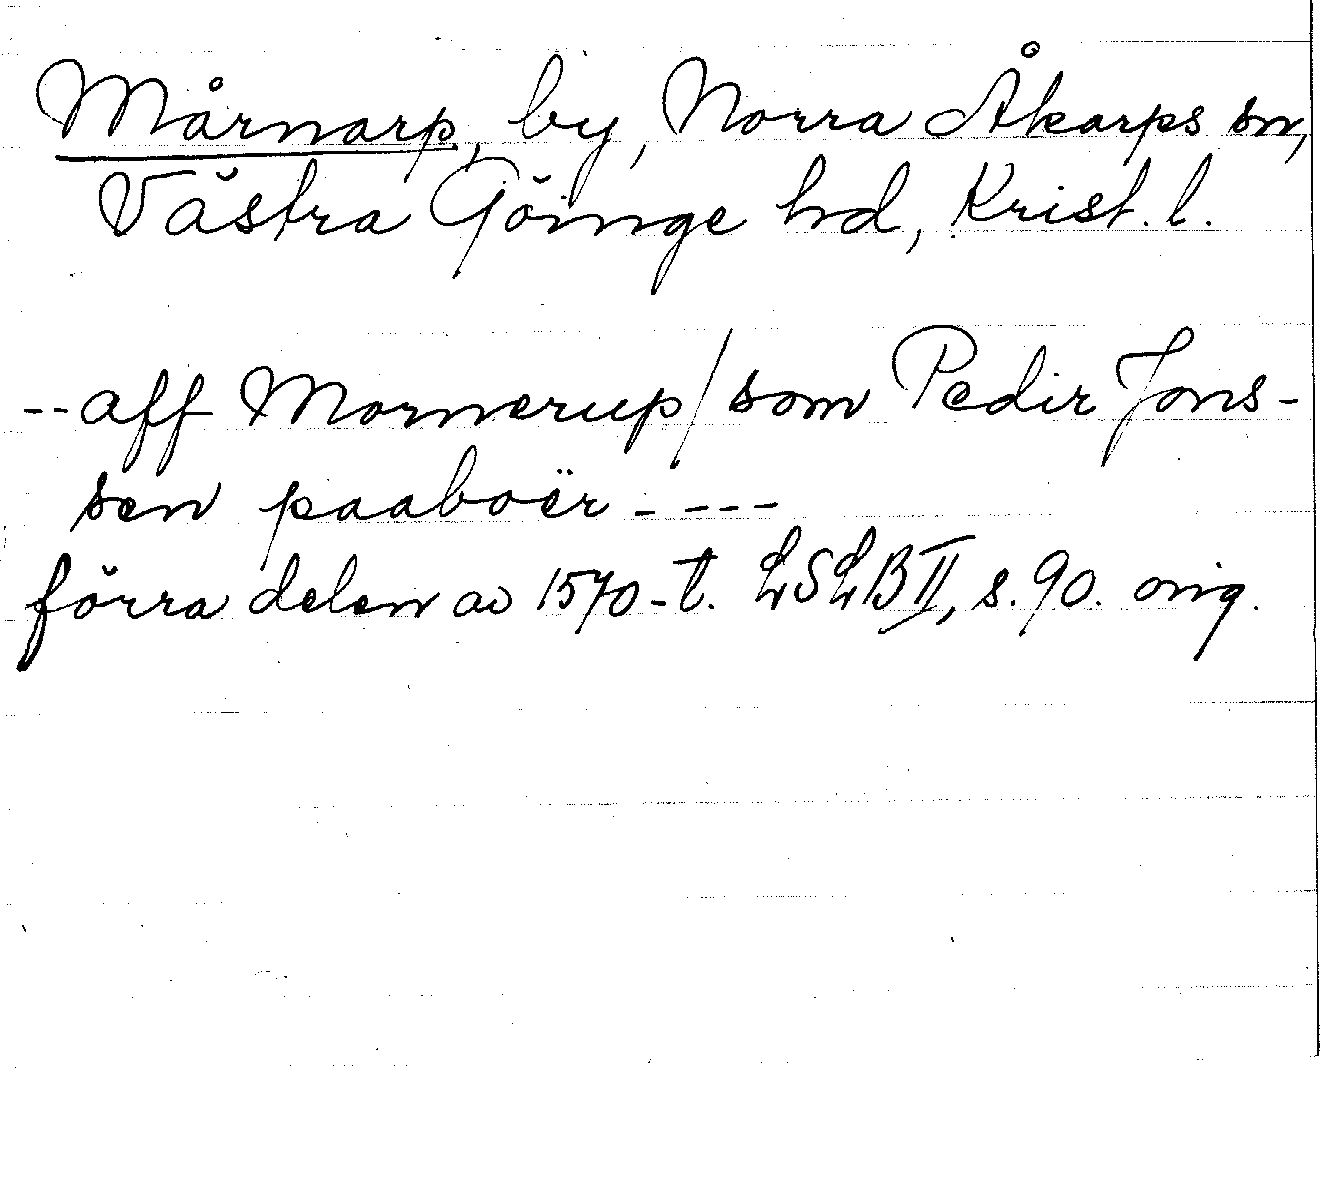 Mårnarp, by, Norra Åkarps sn,
Västra Göinge hd, Krist. l.
-- aff Mornerup/som Pedir Jons-
sen paaboër - ---
förra delen av 1570-t. LSLB II, s. 90. orig.